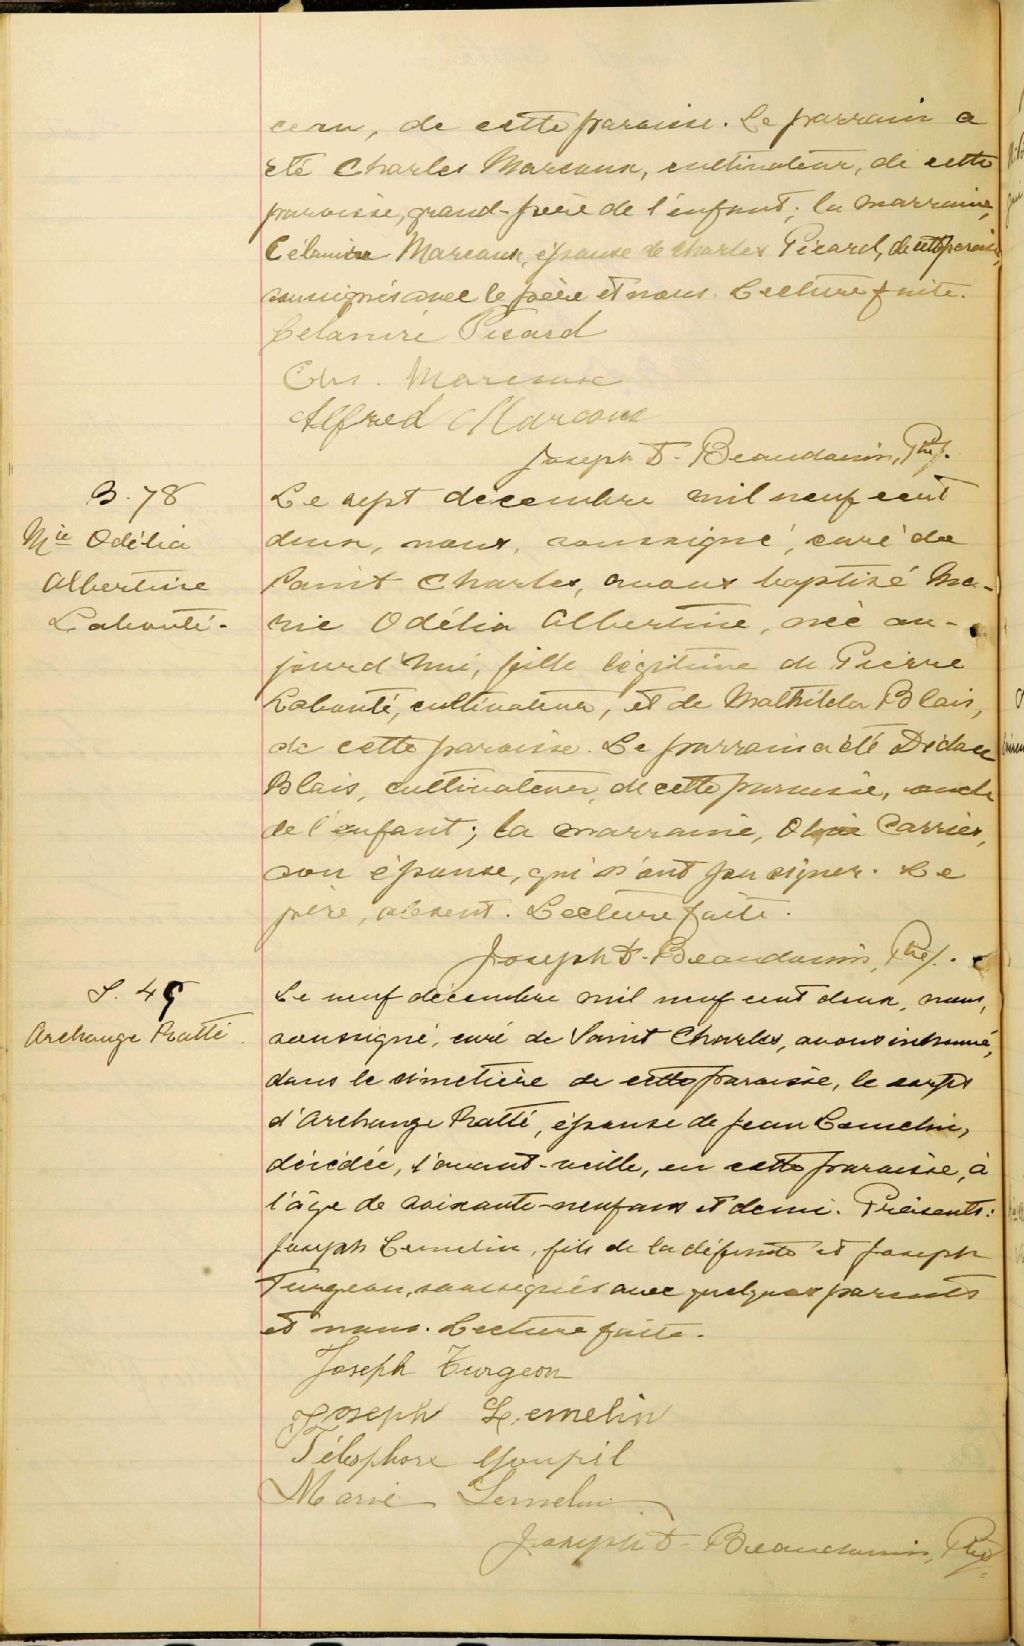 ceau, de cette paroisse. Le parrain a
été Charles Marcoux, cultivateur, de cette
paroisse, grand-père de l'enfant; la marraine,
Célanire Marcoux, épouse de Charles Picard, de cette paroisse,
soussignés avec le père et nous. Lecture faite.
Celanire Picard
Chs. Marcoux
Alfred Marcoux
Joseph D. Beaudouin, Ptre.
B. 78
Mie Odélia
Albertine
Labonté.
Le sept decembre mil neuf cent
deux, nous, soussigné, curé de
Saint Charles, avons baptisé Ma-
rie Odélia Albertine, née au-
jourd'hui, fille légitime de Pierre
Labonté, cultivateur, et de Mathilda Blais,
de cette paroisse. Le parrain a été
Blais, cultivateur, de cette paroisse, oncle
de l'enfant; la marraine, Carrier,
son épouse, qui n'ont pu signer. Le
père, absent. Lecture faite.
Joseph D. Beaudouin, Ptre.
S. 49
Archange Ratté.
Le neuf décembre mil neuf cent deux, nous,
soussigné, curé de Saint Charles, avons inhumé,
dans le cimetière de cette paroisse, le corps
d'Archange Ratté, épouse de Jean Lemelin,
décédée, l'avant-veille, en cette paroisse, à
l'âge de soixante-neuf ans et demi. Présents:
Joseph Lemelin, fils de la défunte et Joseph
Turgeon, soussignés avec quelques parents
et nous. Lecture faite.
Joseph Turgeon
Joseph Lemelin
Télesphore Goupil
Marie Lemelin
Joseph D. Beaudouin, Ptre